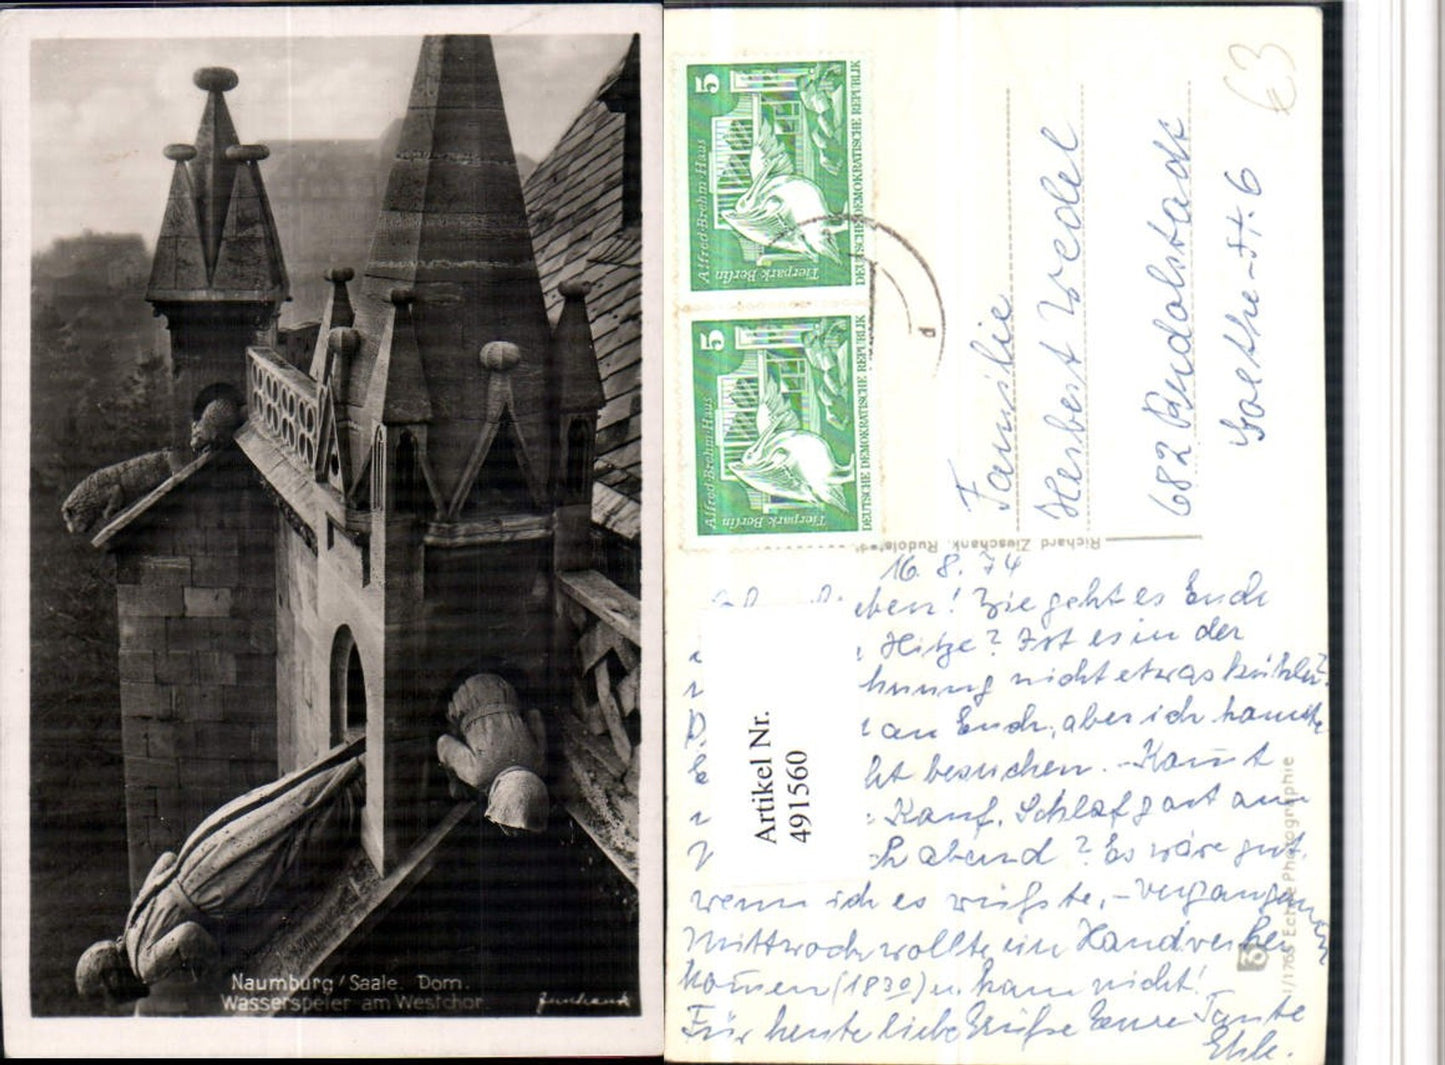 Naumburg/Saale. Dom.
Wasserspeier am Westchor.
5
Alfred-Brehm-Haus
Tierpark Berlin
DEUTSCHE DEMOKRATISCHE REPUBLIK
5
Alfred-Brehm-Haus
Tierpark Berlin
DEUTSCHE DEMOKRATISCHE REPUBLIK
€3
Familie
Herbert Wedel
682 Rudolstadt
Goethe-Str. 6
Richard Zieschank, Rudolstadt
16. 8. 74
ieben! Wie geht es Euch
Hitze? Ist es in der
hnung nicht etwas kühler?
an Euch, aber ich konnte
ht besuchen. - Kommt
Schlafgast am
ch abend? Es wäre gut,
wenn ich es wüßte. - Vergangenen
Mittwoch wollte ein Handwerker
kom̄en (18 30) u. kam nicht!
Für heute liebe Grüße Eure Tante
Elik.
Artikel Nr.
491560
Echte Photographie